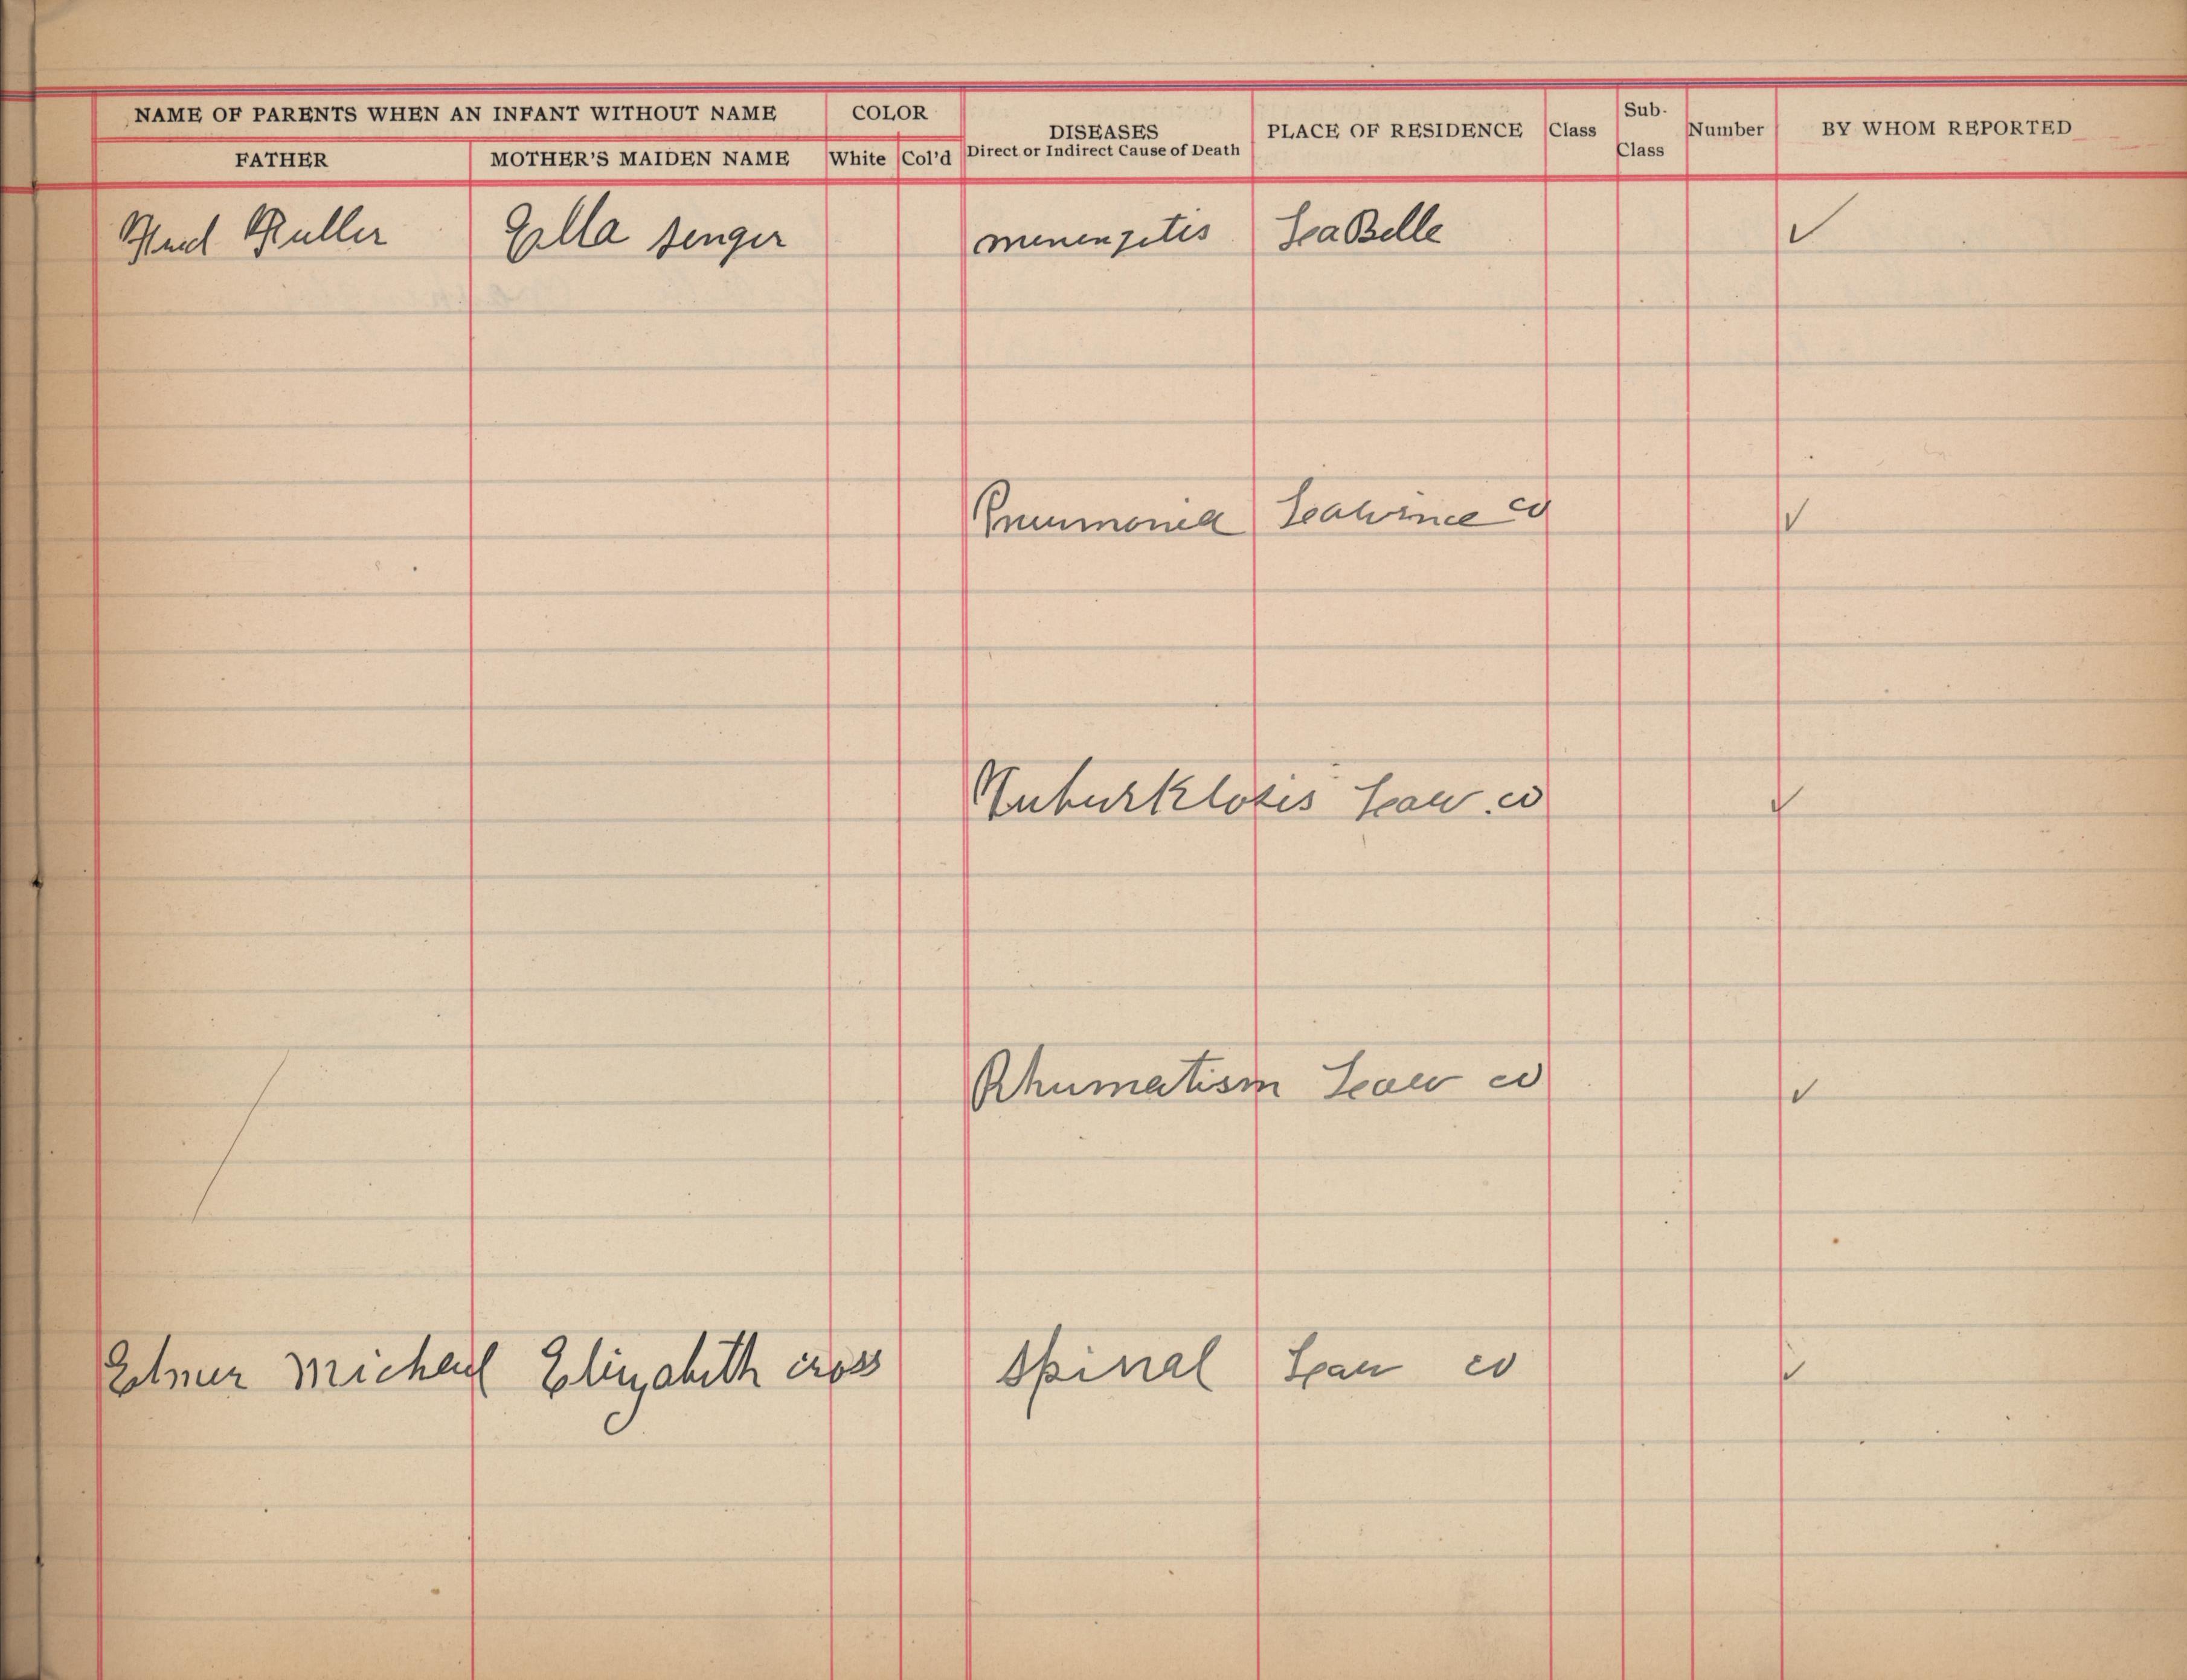 NAME OF PARENTS WHEN AN INFANT WITHOUT NAME COLOR DISEASES Direct or Indirect Cause of Death PLACE OF RESIDENCE Class Sub-Class Number BY WHOM REPORTED
FATHER MOTHER'S MAIDEN NAME White Col'd
Ella senger menengetis LaBelle ✓
Pneumonia ✓
Tuburklosis co ✓
Rhumatism co ✓
Elmer Micheal Elizabeth cross spinal co ✓